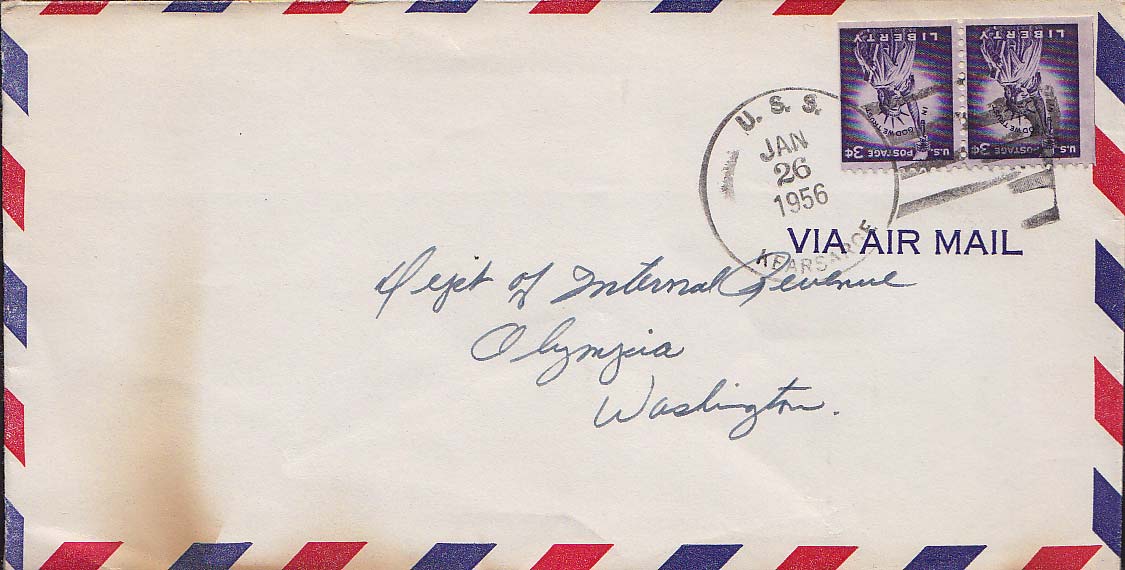 LIBERTY LIBERTY
IN GOD WE TRUST
U.S. POSTAGE 3¢ U.S. POSTAGE 3¢
U. S. S.
JAN
26
1956
KEARSARGE
VIA AIR MAIL
Dept of Internal Revenue
Olympia
Washington.